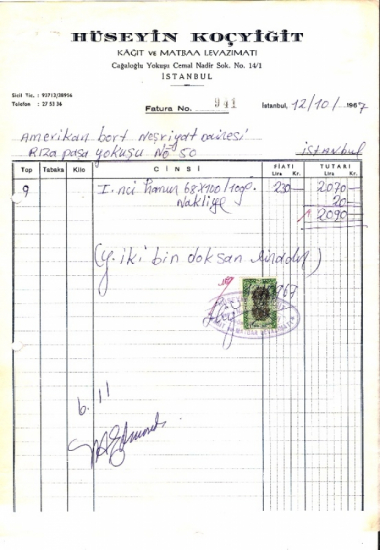 HÜSEYİN KOÇYİĞİT
KÂĞIT VE MATBAA LEVAZIMATI
Cağaloğlu Yokuşu Cemal Nadir Sok. No. 14/1
İSTANBUL
Sicil Tic. : 93713/38956
Telefon : 27 53 36
Fatura No. 941
İstanbul, 12/10/1967
Amerikan bort Neşriyat Dairesi
Rıza paşa yokuşu No 50 İstanbul
Top Tabaka Kilo CİNSİ FİATI Lira Kr. TUTARI Lira Kr.
9 I. nci hamur 68x100/ 230 2070
Nakliye 20
2090
(Y. iki bin doksan liradır)
967
6.11